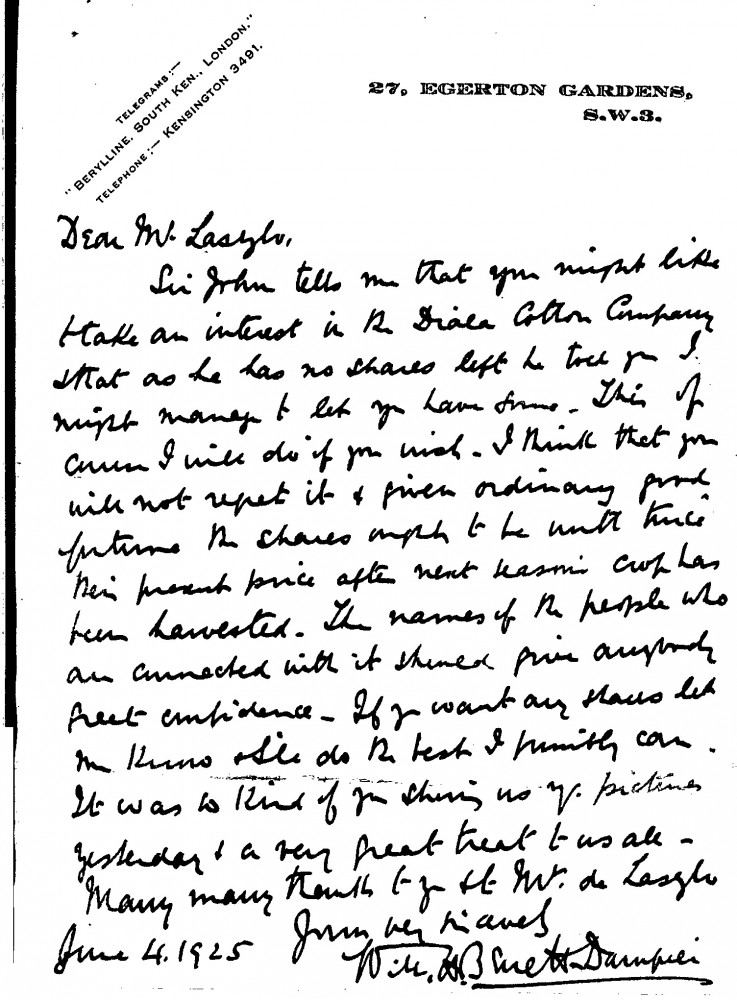 TELEGRAMS:—
"BERYLLINE, SOUTH KEN., LONDON."
TELEPHONE:— KENSINGTON 3491.
27, EGERTON GARDENS,
S.W.3.
Dear Mr. Laszlo,
Sir John tells me that you might like
to take an interest in the Diala Cotton Company
& that as he has no shares left he told you I
might manage to let you have some. This of
course I will do if you wish. I think that you
will not regret it & given ordinary good
fortune the shares ought to be worth twice
their present price after next season's crop has
been harvested. The names of the people who
are connected with it should give anybody
great confidence. If you want any shares let
me know & I'll do the best I possibly can.
It was so kind of you showing us yr. pictures
yesterday & a very great treat to us all -
Many many thanks to you & to Mr. de Laszlo
Yours very sincerely
June 4. 1925
Will. H. Barrett-Dampier